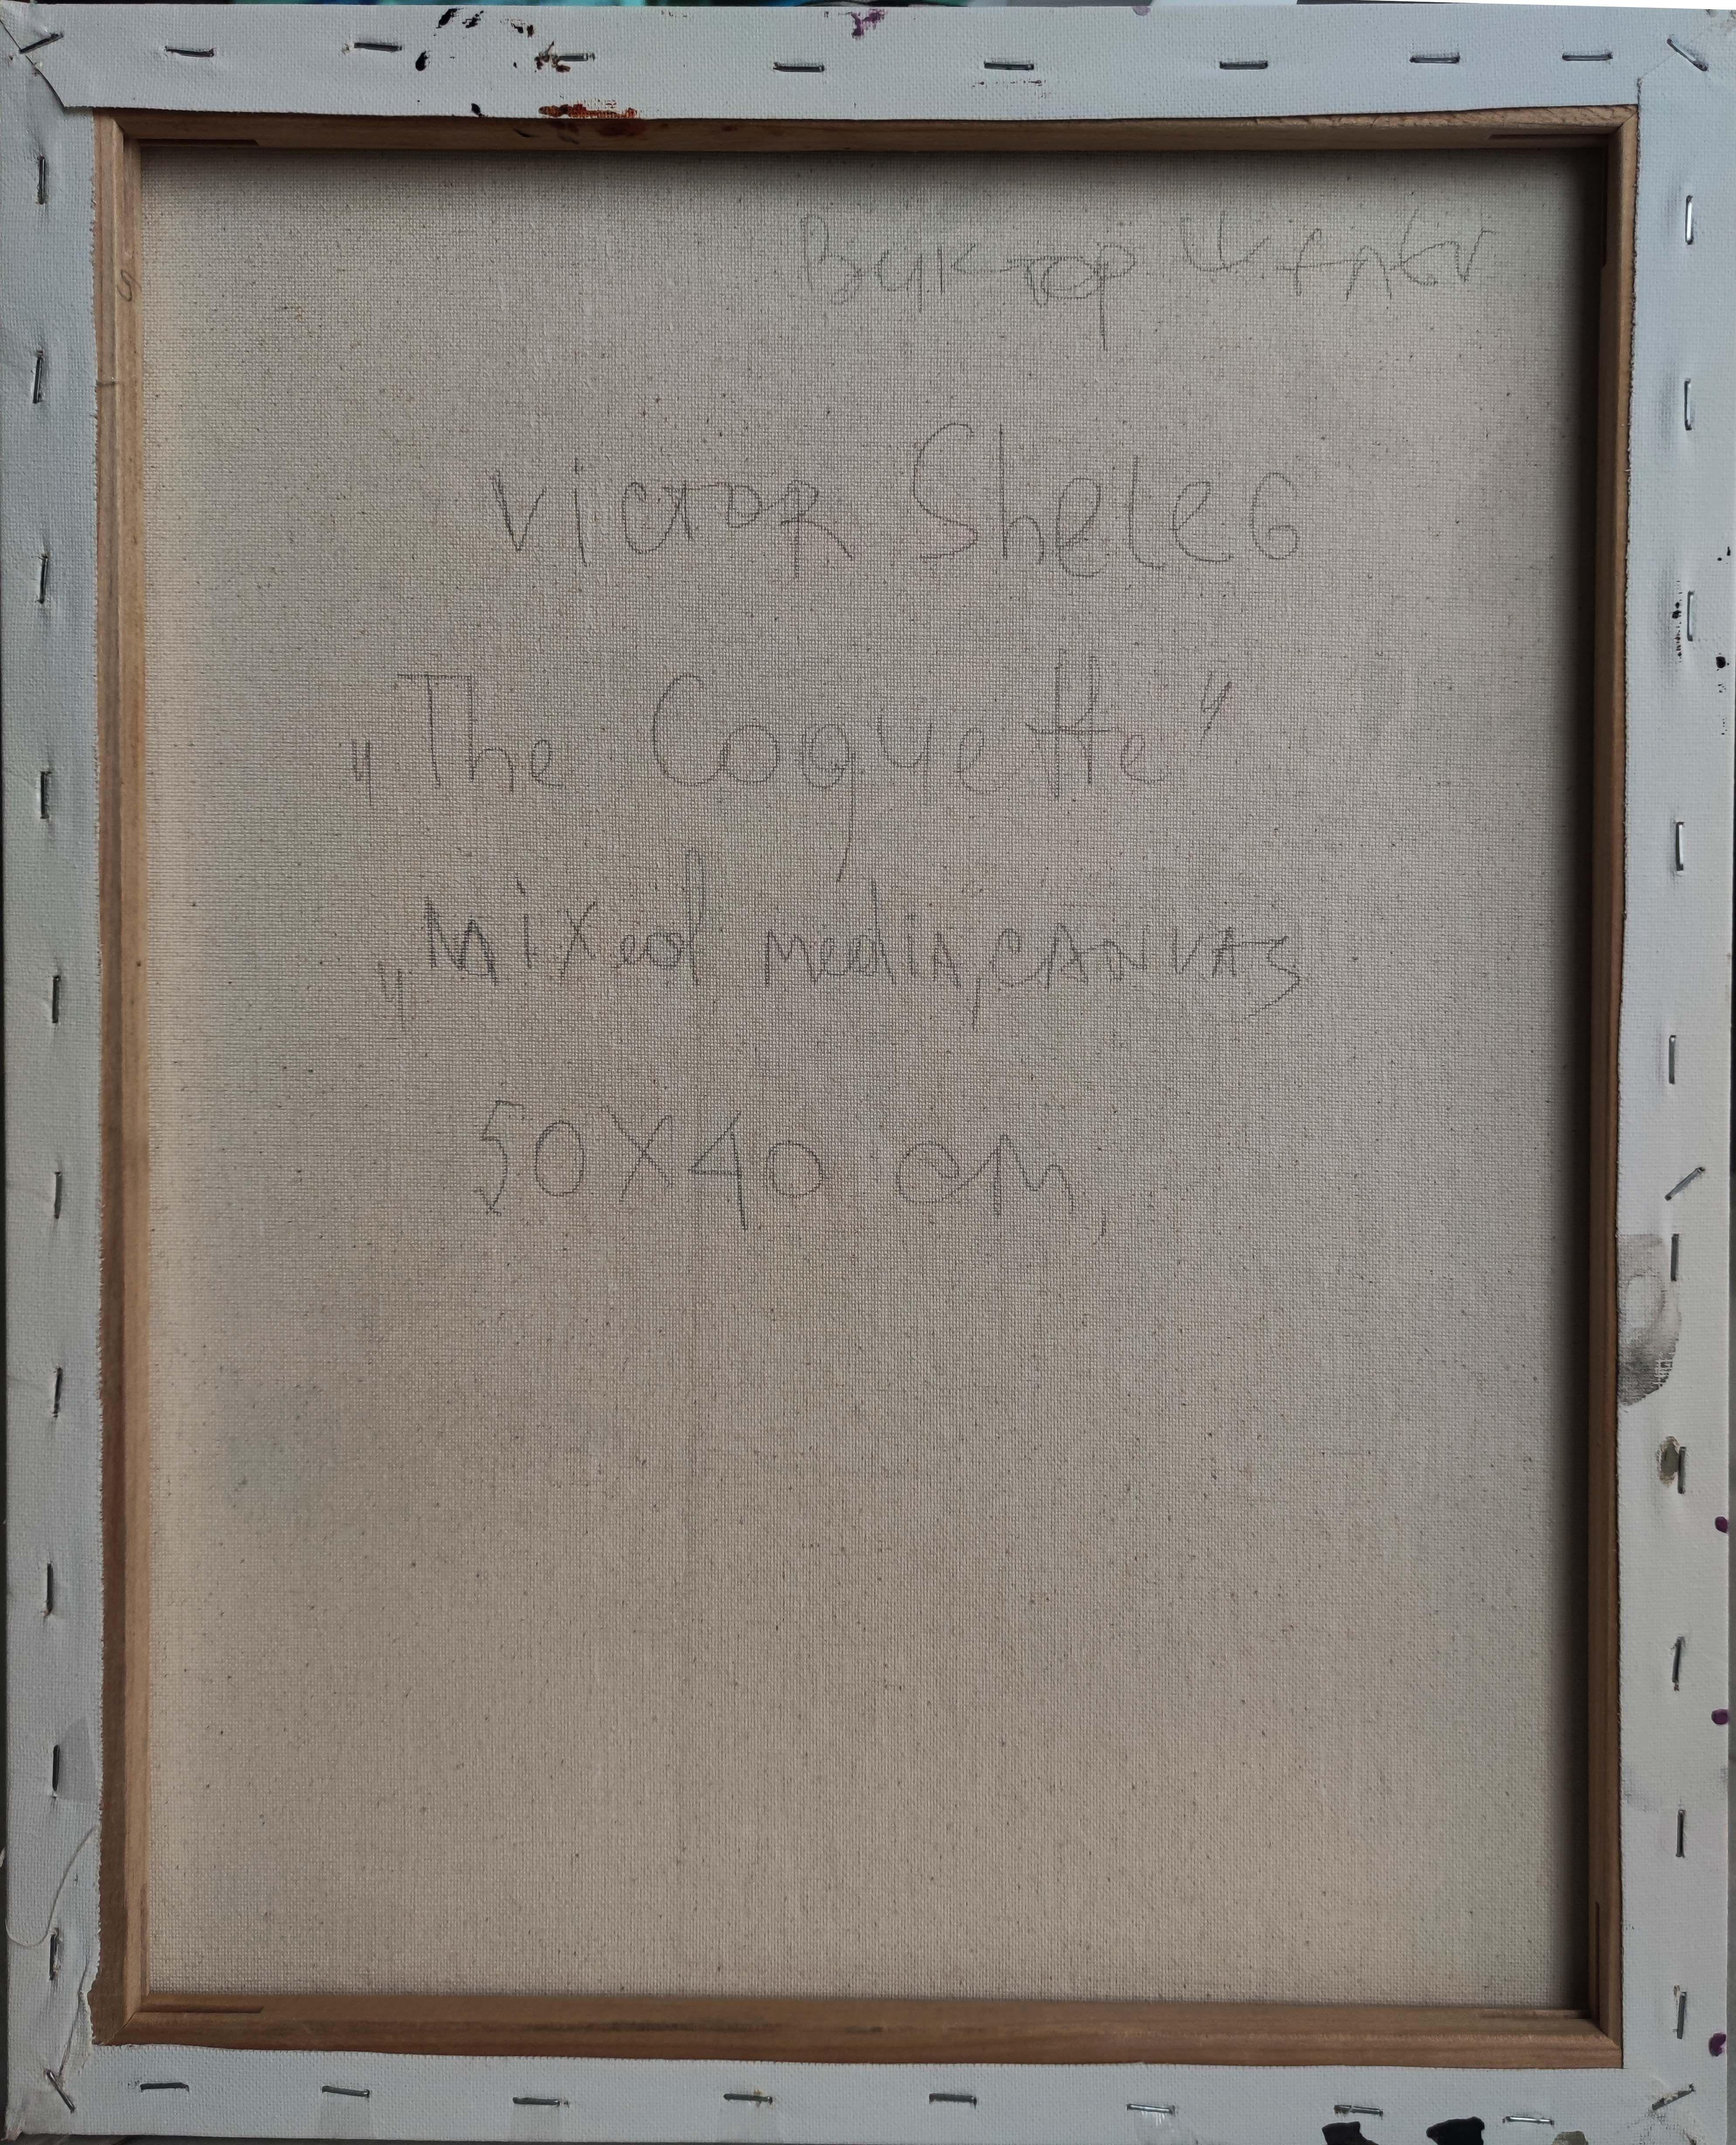 Виктор
Victor Sheleg
„The Coquette"
„Mixed MediA, CANVAS
50X40 cm,